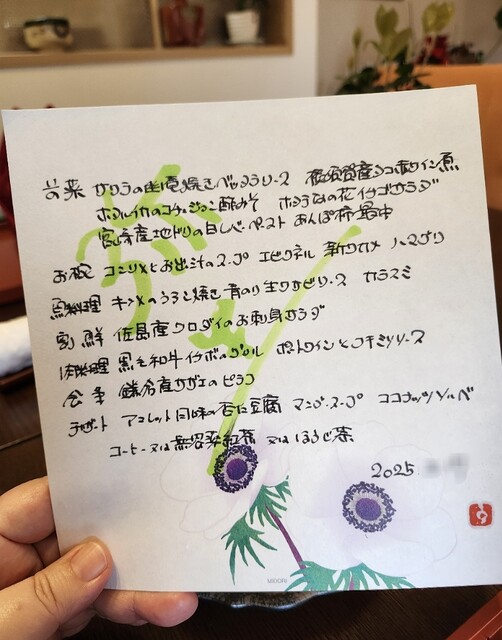 前菜 サワラの幽庵焼きベッコウソース 横須賀産タコ赤ワイン煮
ホタルイカのコチュジャン酢みそ ホタテなの花イチゴサラダ
宮崎産地ドリの白レバーペースト あんぽ柿最中
お椀 コンソメとお出汁のスープ エビクネル 新ワカメ ハマグリ
魚料理 キンメのうろこ焼き 青のり生ワサビソース カラスミ
割鮮 佐島産クロダイのお刺身サラダ
肉料理 黒毛和牛イチボのグリル ポートワインとフキミソソース
食事 鎌倉産サザエのピラフ
デザート アマレット風味の杏仁豆腐 マンゴースープ ココナッツソルベ
コーヒー又は無農薬紅茶 又はほうじ茶
2025
MIDORI